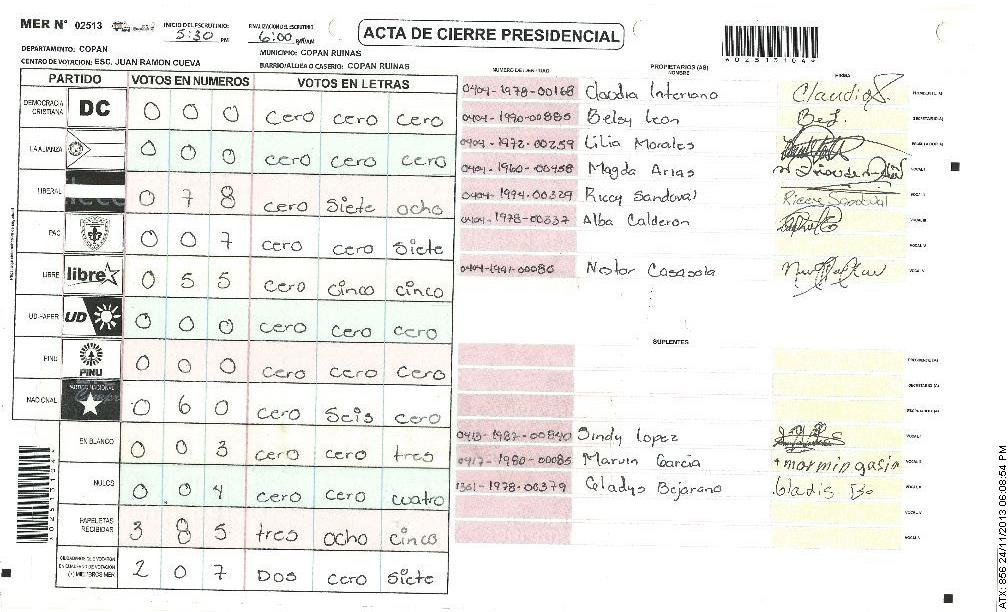 MER N° 02513
INICIO DEL ESCRUTINIO: 5:30 PM
FINALIZACION DEL ESCRUTINIO 6:00
ACTA DE CIERRE PRESIDENCIAL
DEPARTAMENTO: COPAN
MUNICIPIO: COPAN RUINAS
CENTRO DE VOTACION: ESC. JUAN RAMON CUEVA
BARRIO/ALDEA O CASERIO: COPAN RUINAS
PARTIDO VOTOS EN NUMEROS VOTOS EN LETRAS
DEMOCRACIA CRISTIANA DC 0 0 0 cero cero cero
LA ALIANZA 0 0 0 cero cero cero
LIBERAL 0 7 8 cero Siete ocho
PAC 0 0 7 cero cero Siete
LIBRE libre 0 5 5 cero cinco cinco
UD-FAPER UD 0 0 0 cero cero cero
PINU PINU 0 0 0 cero cero cero
NACIONAL PARTIDO NACIONAL 0 6 0 cero Seis cero
EN BLANCO 0 0 3 cero cero tres
NULOS 0 0 4 cero cero cuatro
PAPELETAS RECIBIDAS 3 8 5 tres ocho cinco
2 0 7 Dos cero Siete
PROPIETARIOS (AS)
NOMBRE
FIRMA
0404-1978-00168 Claudia Interiano Claudia
0404-1990-00885 Belsy Leon
0404-1972-00259 Lilia Morales
0404-1960-00458 Magda Arias
0404-1994-00329 Riccy Sandoval Riccy Sandoval
0404-1978-00337 Alba Calderon
0404-1991-00080 Nestor Casasola
SUPLENTES
0413-1982-00840 Sindy Lopez
0417-1980-00085 Marvin Garcia
1301-1978-00379 Gladys Bejarano
ATX: 856 24/11/2013 06:08:54 PM